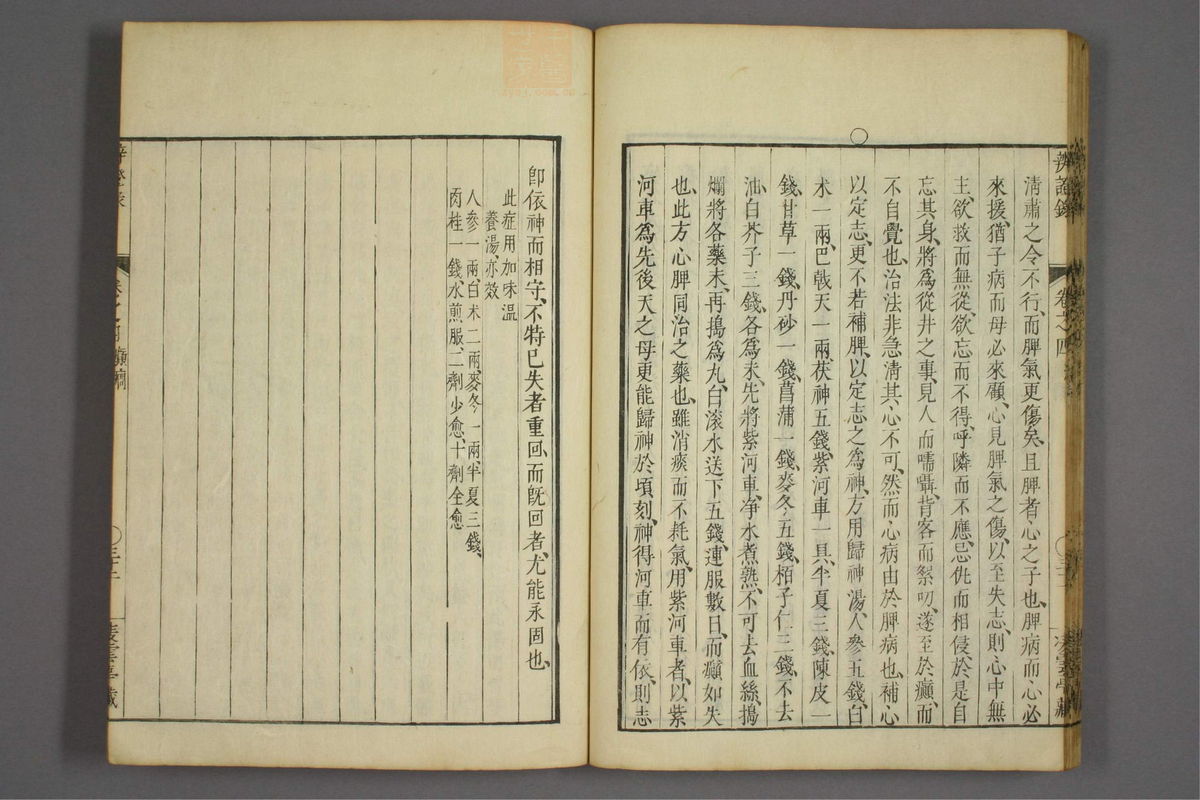 辨證錄
卷之四
清肅之令不行、而脾氣更傷矣、且脾者心之子也、脾病而心必
來援、猶子病而母必來顧、心見脾氣之傷、以至失志、則心中無
主、欲救而無從、欲忘而不得、呼隣而不應、忌仇而相侵、於是自
忘其身、將為從井之事、見人而嚅囁、背客而絮叨、遂至於癲、而
不自覺也、治法非急清其心不可、然而心病由於脾病也、補心
以定志、更不若補脾、以定志之為神、方用歸神湯、人參五錢、白
朮一兩、巴戟天一兩、茯神五錢、紫河車一具、半夏三錢、陳皮一
錢、甘草一錢、丹砂一錢、菖蒲一錢、麥冬五錢、栢子仁三錢、不去
油、白芥子三錢、各為末、先將紫河車、净水煮熟、不可去血絲、搗
爛、將各藥末、再搗為丸、白滚水送下五錢、連服數日、而癲如失
也、此方心脾同治之藥也、雖消痰而不耗氣、用紫河車者、以紫
河車為先後天之母、更能歸神於頃刻、神得河車而有依、則志
卽依神而相守、不特已失者重回、而旣回者、尤能永固也、
此症用加味溫
養湯、亦效
人參一兩、白朮二兩、麥冬一兩、半夏三錢、
肉桂一錢、水煎服、二劑少愈、十劑全愈
癲癎